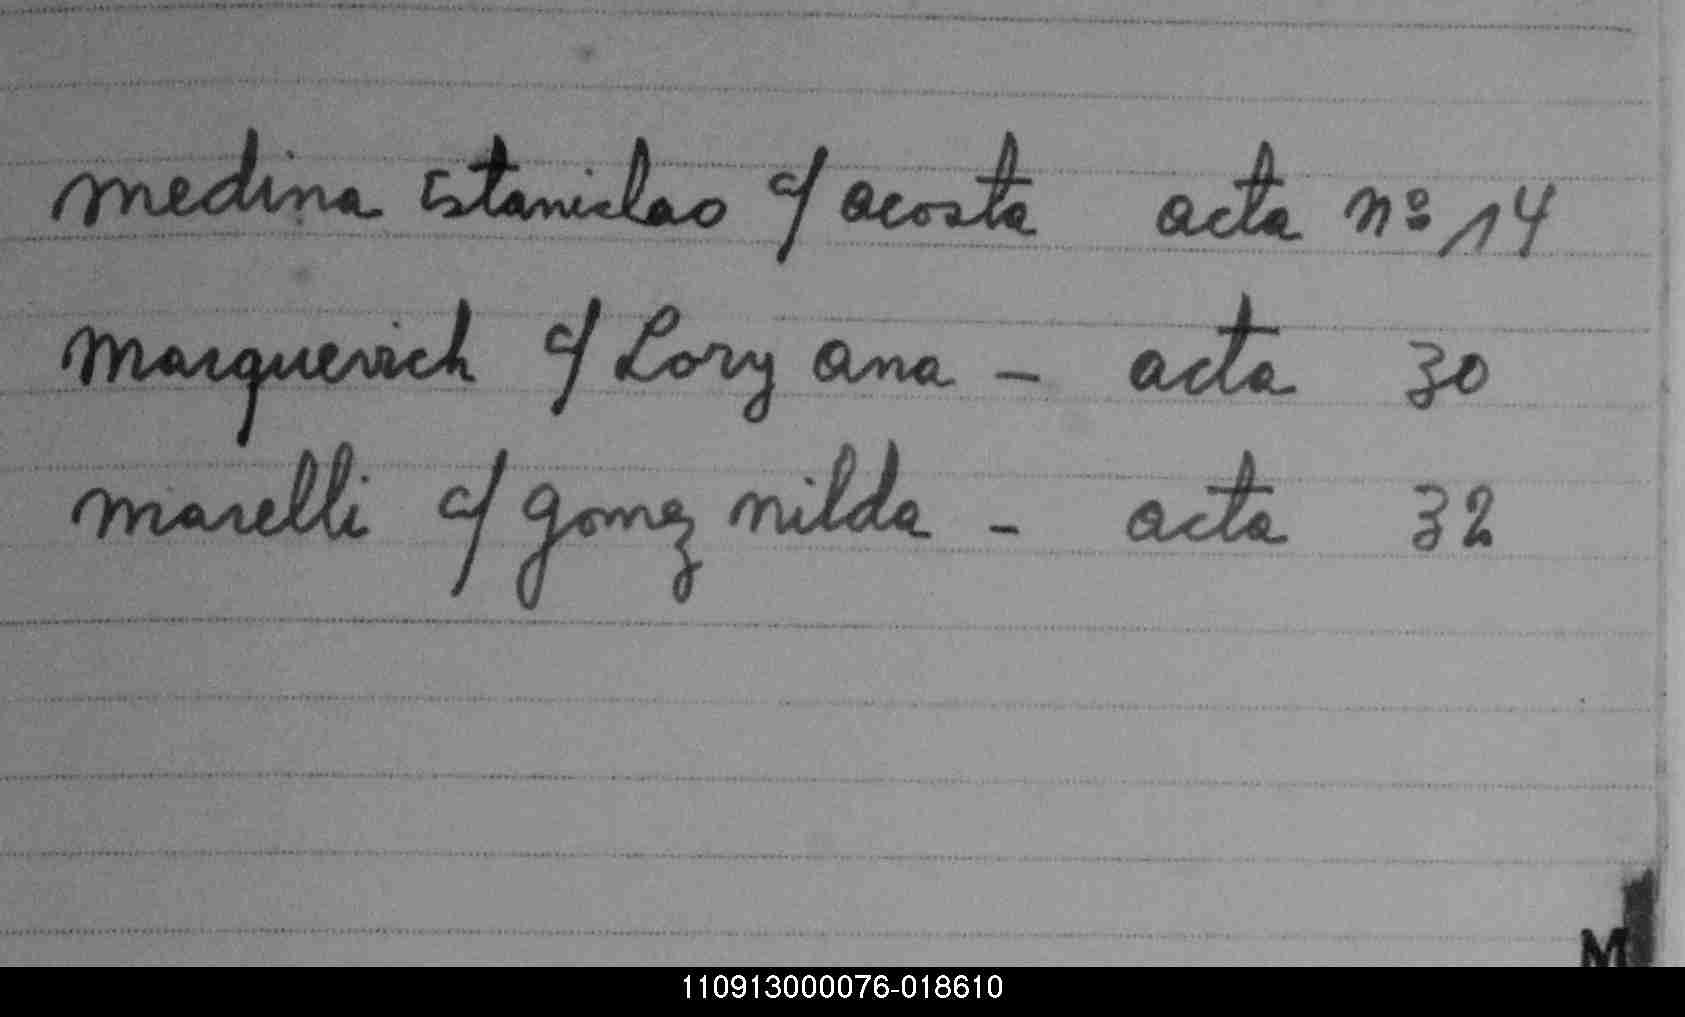 Medina Estanislao c/ Acosta acta nº 14
Marquevich c/ Lory Ana - acta 30
Marelli c/ Gomez Nilda - acta 32
M
110913000076-018610